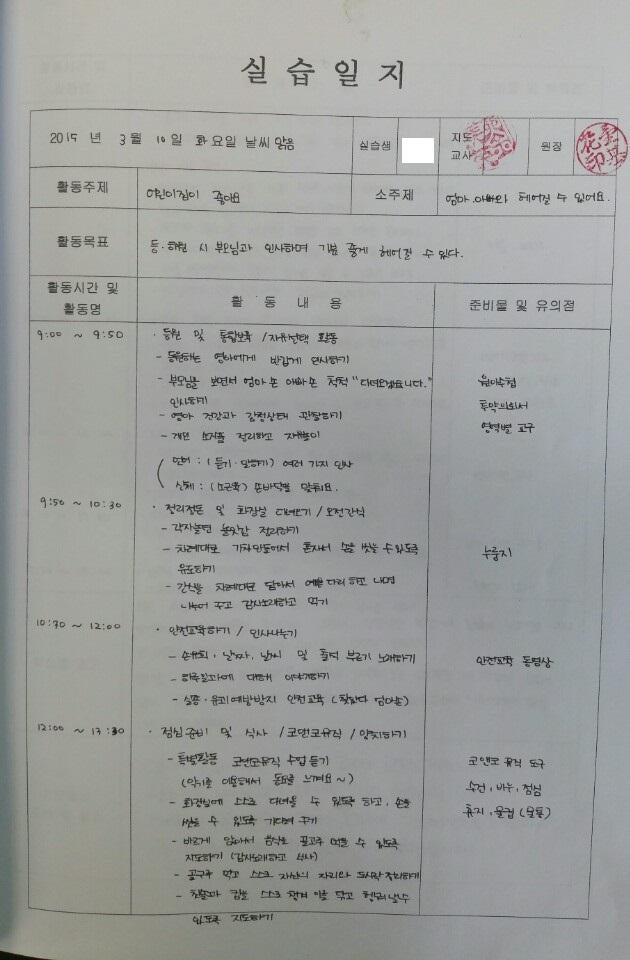 실습일지
2015 년 3월 10일 화요일 날씨 맑음
실습생
지도
교사
원장
활동주제
어린이집이 좋아요
소주제
엄마.아빠와 헤어질 수 있어요.
활동목표
등.하원 시 부모님과 인사하며 기분 좋게 헤어질 수 있다.
활동시간 및
활동명
활 동 내 용
준비물 및 유의점
9:00 ~ 9:50
· 등원 및 통합보육 / 자유선택 활동
- 등원하는 영아에게 반갑게 인사하기
- 부모님을 보면서 엄마손 아빠손 척척 "다녀오겠습니다."
인사하기
- 영아 건강과 감정상태 관찰하기
- 개인 소지품 정리하고 자유놀이
언어 : (듣기·말하기) 여러 가지 인사
신체 : (소근육) 손바닥을 맞춰요.
원아수첩
투약의뢰서
영역별 교구
9:50 ~ 10:30
· 정리정돈 및 화장실 다녀오기 / 오전간식
- 각자놀던 놀잇감 정리하기
- 차례대로 기차 만들어서 혼자서 손을 씻을 수 있도록
유도하기
- 간식을 차례대로 앉아서 예쁜 다리 하고
나누어 주고 감사노래하고 먹기
누룽지
10:30 ~ 12:00
· 안전교육하기 / 인사나누기
- 손유희, 날짜, 날씨 및 출석 부르기 노래하기
- 하루일과에 대해 이야기하기
- 실종·유괴예방방지 안전교육 (찾았다 엄마손)
안전교육 동영상
12:00 ~ 13:30
· 점심 준비 및 식사 / 코앤코뮤직 / 양치하기
- 특별활동 코앤코뮤직 수업 듣기
(악기를 이용해서 동요를 느껴요~)
- 화장실에 스스로 다녀올 수 있도록 하고, 손을
씻을 수 있도록 기다려 주기
- 바르게 앉아서 음식을 골고루 먹을 수 있도록
지도하기 (감사노래하고 식사)
- 골고루 먹고 스스로 자신의 자리와 도시락 정리하기
- 칫솔과 컵을 스스로 챙겨 이를 닦고 헹궈낼 수
있도록 지도하기
코앤코 뮤직 도구
수건, 비누, 점심
휴지, 물컵 (물통)